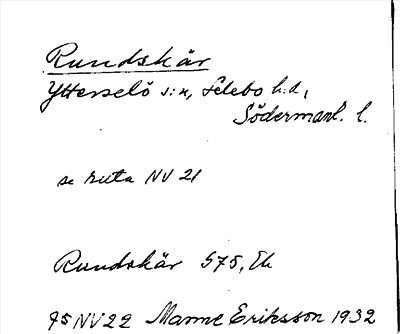 Rundskär
Ytterselö s:n, Selebo h:d,
Södermanl. l.
se ruta NV 21
Rundskär 575, Ek
75 NV 22 Manne Eriksson 1932